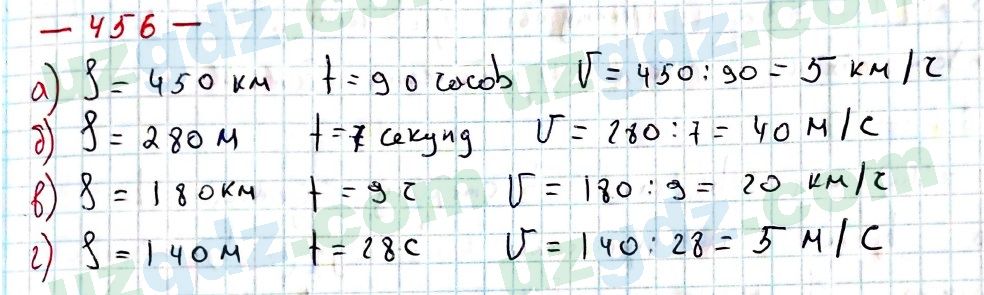 — 456 —
а) S = 450 км t = 90 часов V = 450 : 90 = 5 км/ч
б) S = 280 м t = 7 секунд V = 280 : 7 = 40 м/с
в) S = 180 км t = 9 ч V = 180 : 9 = 20 км/ч
г) S = 140 м t = 28 с V = 140 : 28 = 5 м/с
uzgdz.com